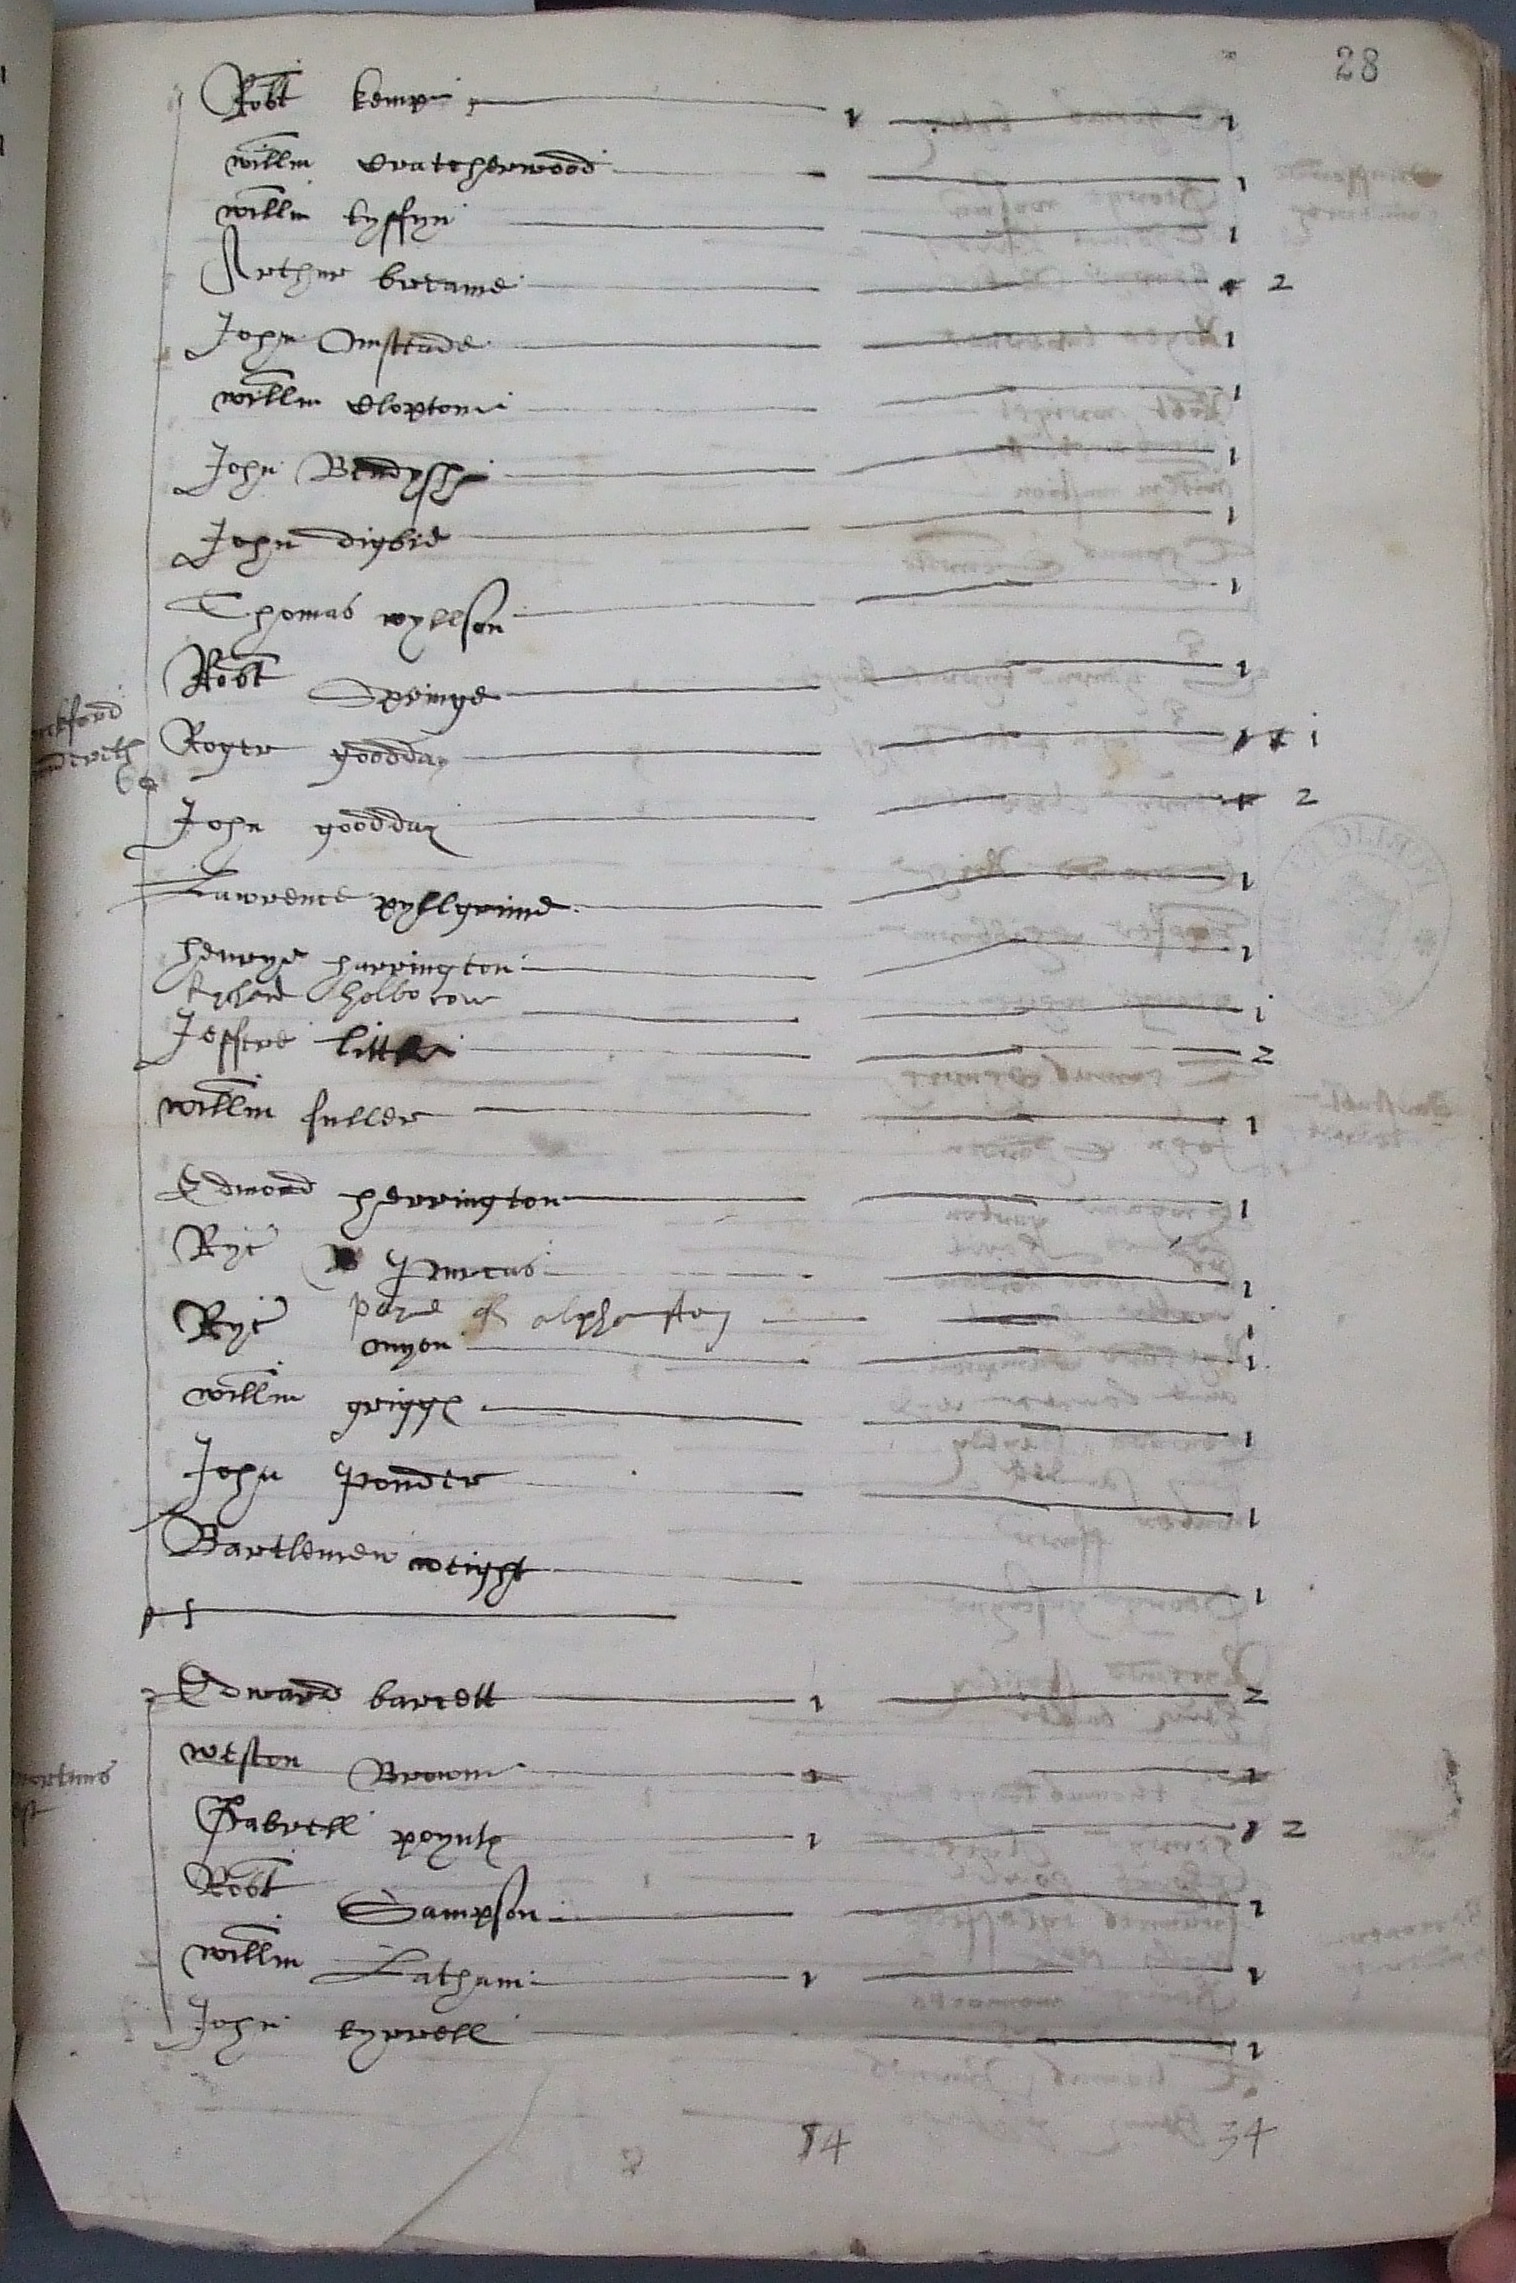 28
Robt kempe 1 1
willm Cratcherwood 1
willm tyffyn 1
Arthur bretame 2
John Omstede 1
willm Cloptom 1
John Bendyshe 1
John digbie 1
Thomas wyllson 1
Robt Springe 1
Roger goodday i
John goodday 2
Lawrence pyllgrime 1
henrye harrington 1
Rychard holborow i
Jeffere little 2
willm fuller 1
Edmond herrington 1
Ryc 1
page of alphamston 1
Ryc onyon 1
willm griggs 1
John Ponder 1
Bartlemew wright 1
Edward barrett 1 2
weston Browne 1 1
Gabrell poyntz 1 2
Robt Sampson 1
willm Latham 1 1
John tyrrell 1
14 34